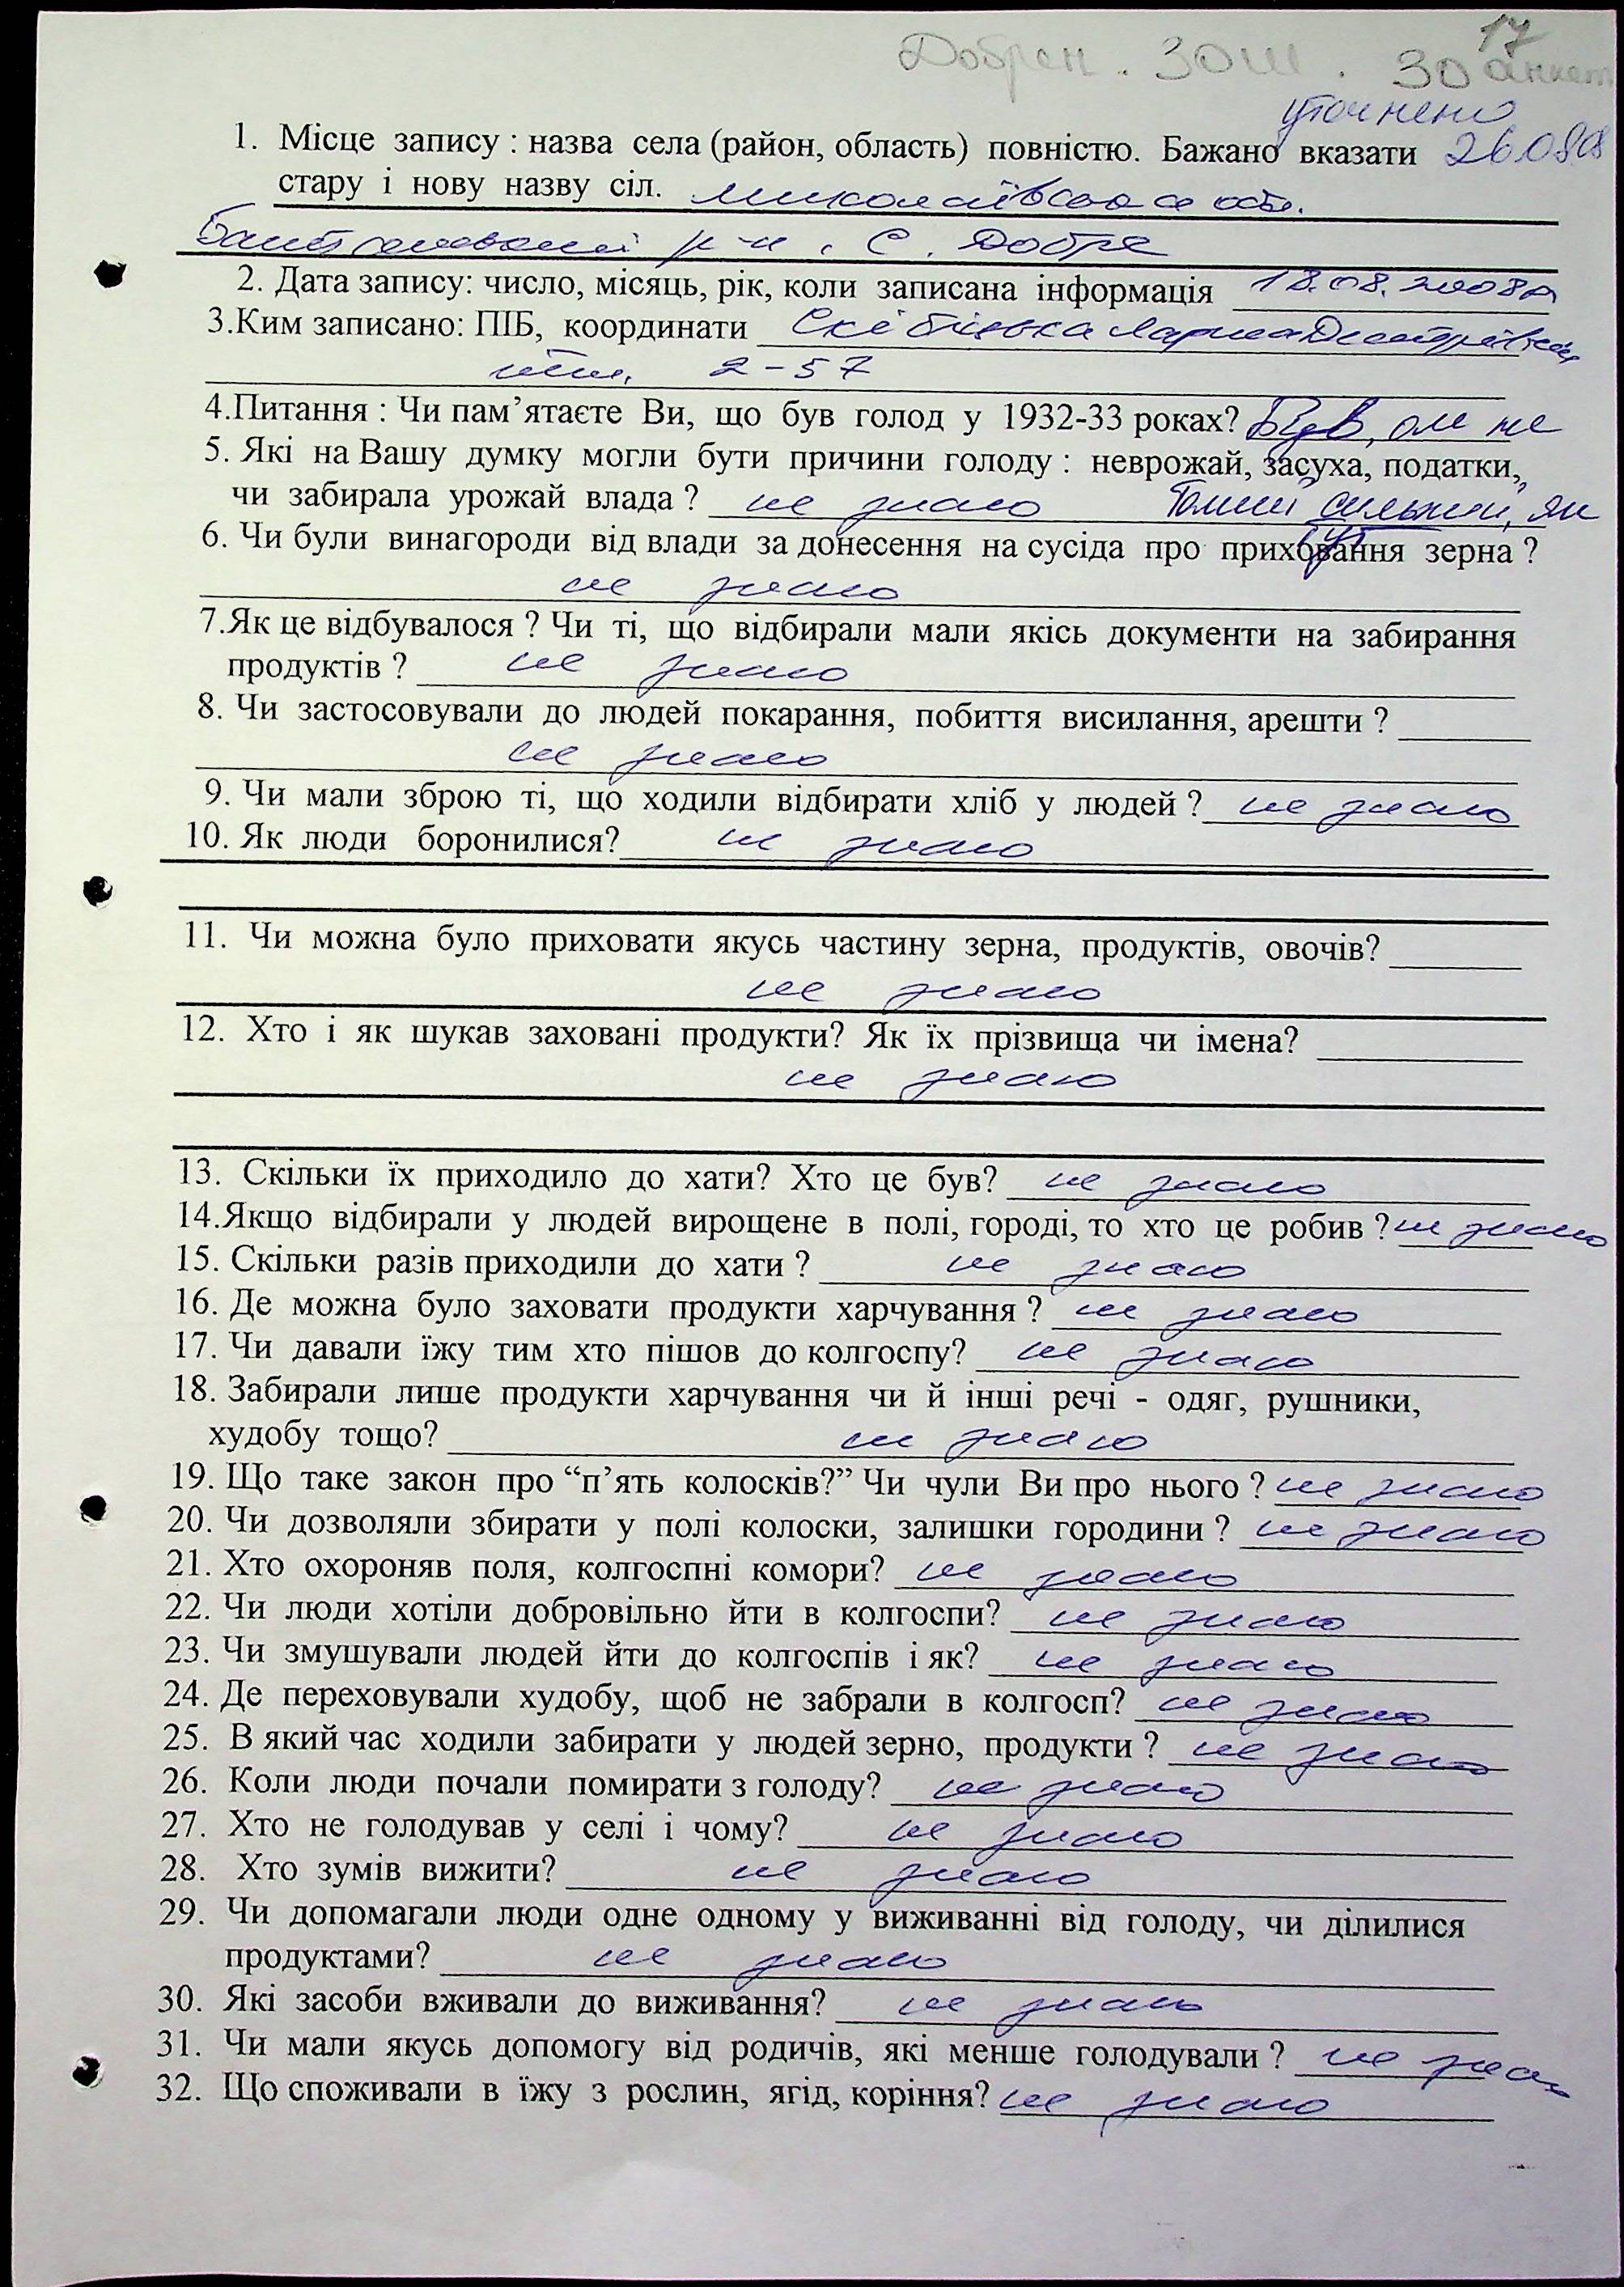 17
Добрен. ЗОШ. 30 анкет
уточнено
1. Місце запису : назва села (район, область) повністю. Бажано вказати 26.08.08
стару і нову назву сіл. Миколаївська обл.
Баштанський р-н, с. Добре
2. Дата запису: число, місяць, рік, коли записана інформація 18.08.2008р
3.Ким записано: ПІБ, координати Лариса Дмитрівна
тел. 2-57
4.Питання : Чи пам’ятаєте Ви, що був голод у 1932-33 роках? Був, ал не
5. Які на Вашу думку могли бути причини голоду : неврожай, засуха, податки,
чи забирала урожай влада ? не знаю такий сильний, як
тут
6. Чи були винагороди від влади за донесення на сусіда про приховання зерна ?
не знаю
7.Як це відбувалося ? Чи ті, що відбирали мали якісь документи на забирання
продуктів ? не знаю
8. Чи застосовували до людей покарання, побиття висилання, арешти ?
не знаю
9. Чи мали зброю ті, що ходили відбирати хліб у людей ? не знаю
10. Як люди боронилися? не знаю
11. Чи можна було приховати якусь частину зерна, продуктів, овочів?
не знаю
12. Хто і як шукав заховані продукти? Як їх прізвища чи імена?
не знаю
13. Скільки їх приходило до хати? Хто це був? не знаю
14.Якщо відбирали у людей вирощене в полі, городі, то хто це робив ? не знаю
15. Скільки разів приходили до хати ? не знаю
16. Де можна було заховати продукти харчування ? не знаю
17. Чи давали їжу тим хто пішов до колгоспу? не знаю
18. Забирали лише продукти харчування чи й інші речі - одяг, рушники,
худобу тощо? не знаю
19. Що таке закон про “п’ять колосків?” Чи чули Ви про нього ? не знаю
20. Чи дозволяли збирати у полі колоски, залишки городини ? не знаю
21. Хто охороняв поля, колгоспні комори? не знаю
22. Чи люди хотіли добровільно йти в колгоспи? не знаю
23. Чи змушували людей йти до колгоспів і як? не знаю
24. Де переховували худобу, щоб не забрали в колгосп? не знаю
25. В який час ходили забирати у людей зерно, продукти ? не знаю
26. Коли люди почали помирати з голоду? не знаю
27. Хто не голодував у селі і чому? не знаю
28. Хто зумів вижити? не знаю
29. Чи допомагали люди одне одному у виживанні від голоду, чи ділилися
продуктами? не знаю
30. Які засоби вживали до виживання? не знаю
31. Чи мали якусь допомогу від родичів, які менше голодували ? не знаю
32. Що споживали в їжу з рослин, ягід, коріння? не знаю